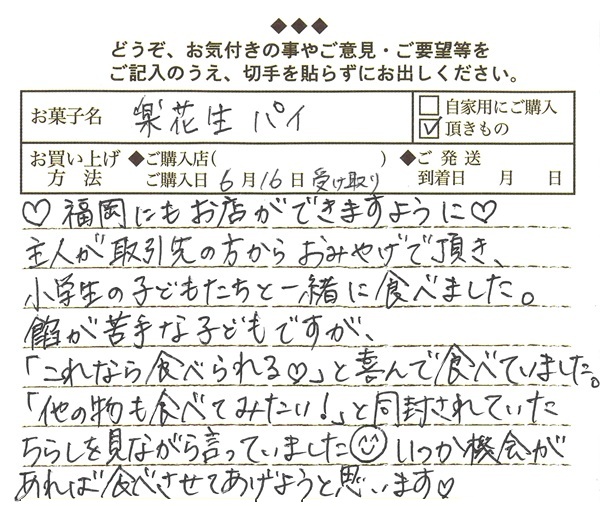 ◆◆◆
どうぞ、お気付きの事やご意見・ご要望等を
ご記入のうえ、切手を貼らずにお出しください。
お菓子名 楽花生パイ □自家用にご購入
☑頂きもの
お買い上げ ◆ご購入店( ) ◆ご発送
方法 ご購入日 6月16日 受け取り 到着日 月 日
♡福岡にもお店ができますように♡
主人が取引先の方からおみやげで頂き、
小学生の子どもたちと一緒に食べました。
餡が苦手な子どもですが、
「これなら食べられる♡」と喜んで食べていました。
「他の物も食べてみたい!」と同封されていた
ちらしを見ながら言っていました😊いつか機会が
あれば食べさせてあげようと思います♡